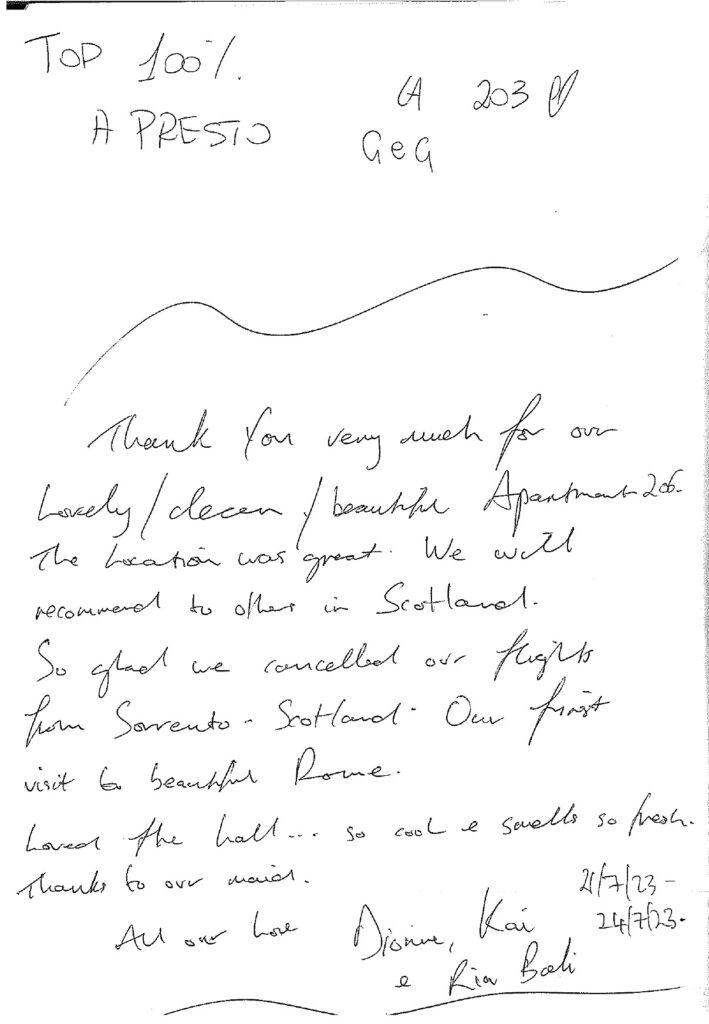 TOP 100%.
A PRESTO
203
G e G
Thank You very much for our
Lovely/clean/beautiful Apartment 206.
The Location was great. We will
recommend to others in Scotland.
So glad we cancelled our flights
from Sorrento - Scotland. Our first
visit to beautiful Rome.
Loved the hall... so cool e smells so fresh.
Thanks to our maid.
21/7/23 -
24/7/23.
All our love
Kai
e Ria